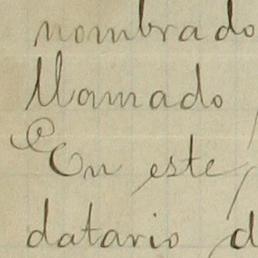 nombrado
llamado
En este
datario d